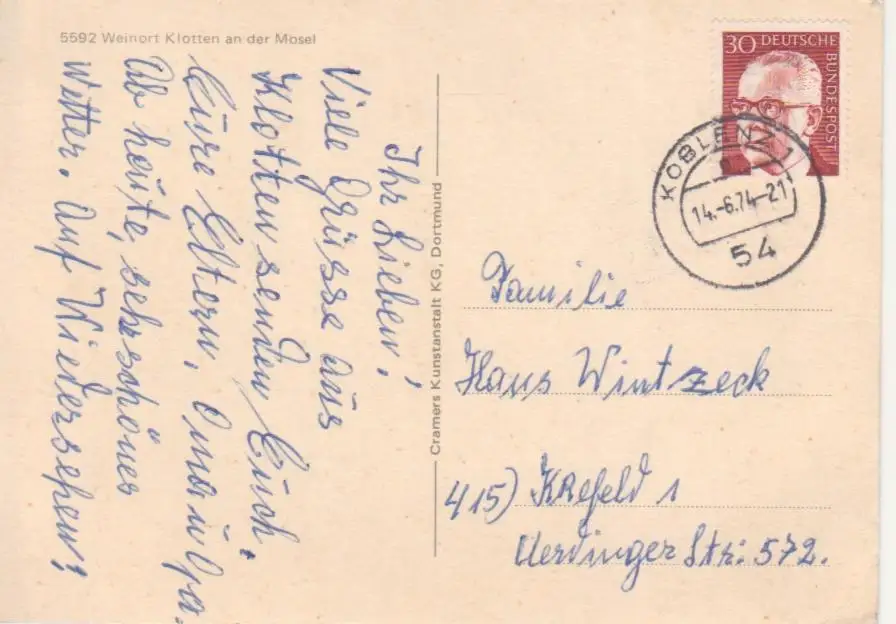 5592 Weinort Klotten an der Mosel
Ihr Lieben!
Viele Grüsse aus
Klotten senden Euch.
Eure Eltern, Oma u Opa.
Ab heute, sehr schönes
Wetter. Auf Wiedersehen!
Cramers Kunstanstalt KG, Dortmund
30 DEUTSCHE
BUNDESPOST
KOBLENZ 1
14.-6.74-21
54
Familie
Hans Wintzeck
415) Krefeld 1
Uerdinger Str: 572.